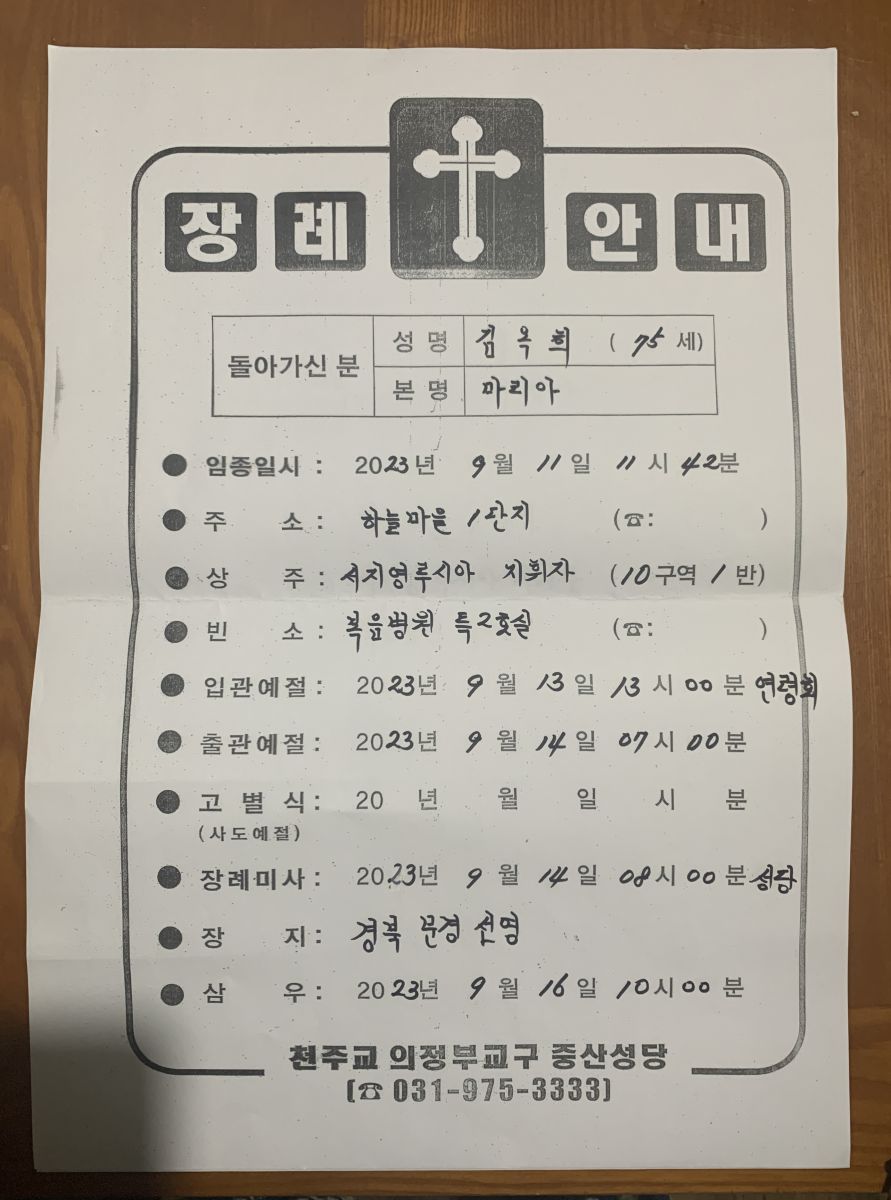 장례 안내
돌아가신 분
성 명 김옥희 ( 75 세)
본 명 마리아
● 임종일시 : 2023년 9월 11일 11시 42분
● 주 소 : 하늘마을 1단지 (☎: )
● 상 주 : 서지영루시아 지휘자 (10구역 1반)
● 빈 소 : 복음병원 특2호실 (☎: )
● 입관예절 : 2023년 9월 13일 13시 00분 연령회
● 출관예절 : 2023년 9월 14일 07시 00분
● 고별식 : 20 년 월 일 시 분
(사도예절)
● 장례미사 : 2023년 9월 14일 08시 00분 성당
● 장 지 : 경북 문경 선영
● 삼 우 : 2023년 9월 16일 10시 00분
천주교 의정부교구 중산성당
(☎ 031-975-3333)